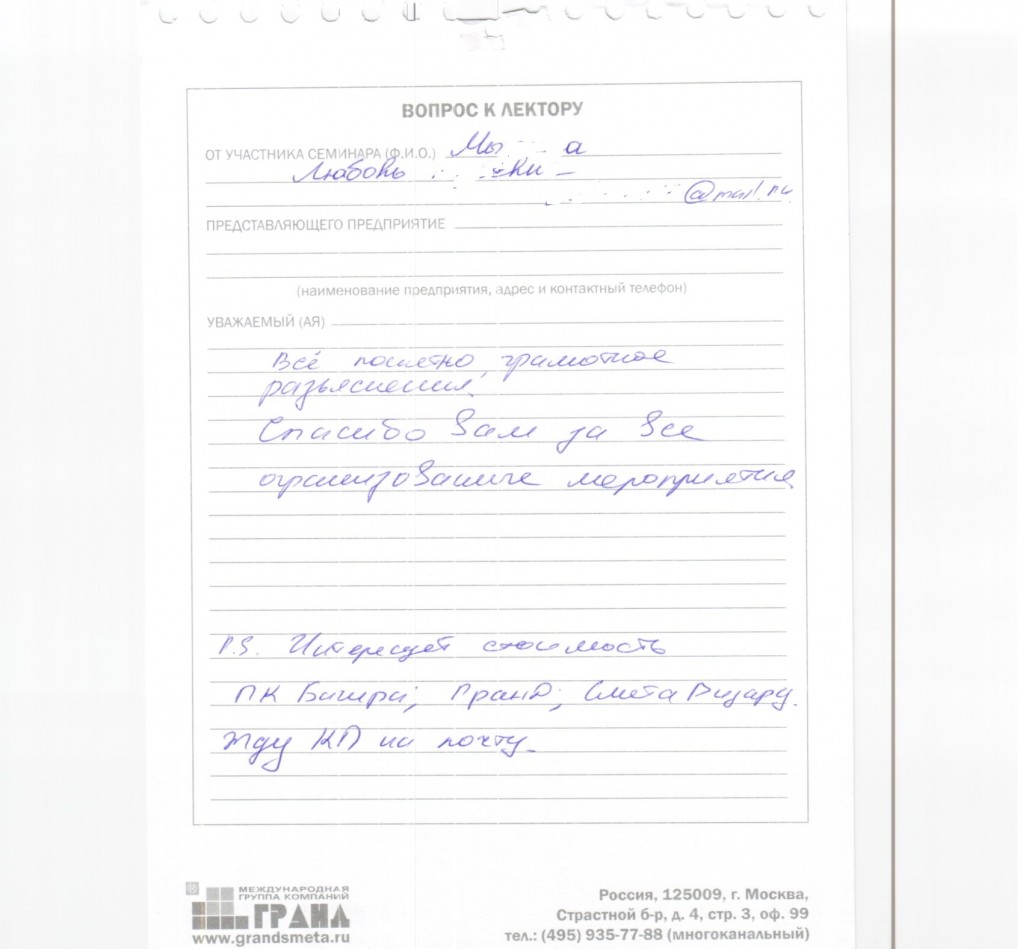 ВОПРОС К ЛЕКТОРУ
ОТ УЧАСТНИКА СЕМИНАРА (Ф.И.О.) Мы а
Любовь
@mail.ru
ПРЕДСТАВЛЯЮЩЕГО ПРЕДПРИЯТИЕ
(наименование предприятия, адрес и контактный телефон)
УВАЖАЕМЫЙ (АЯ)
Всё понятно, грамотное
разъяснения.
Спасибо Вам за все
организованные мероприятия
P.S. Интересует стоимость
ПК Гранд; Смета Визард.
Жду КП на почту.
МЕЖДУНАРОДНАЯ
ГРУППА КОМПАНИЙ
ГРАНД
www.grandsmeta.ru
Россия, 125009, г. Москва,
Страстной б-р, д. 4, стр. 3, оф. 99
тел.: (495) 935-77-88 (многоканальный)